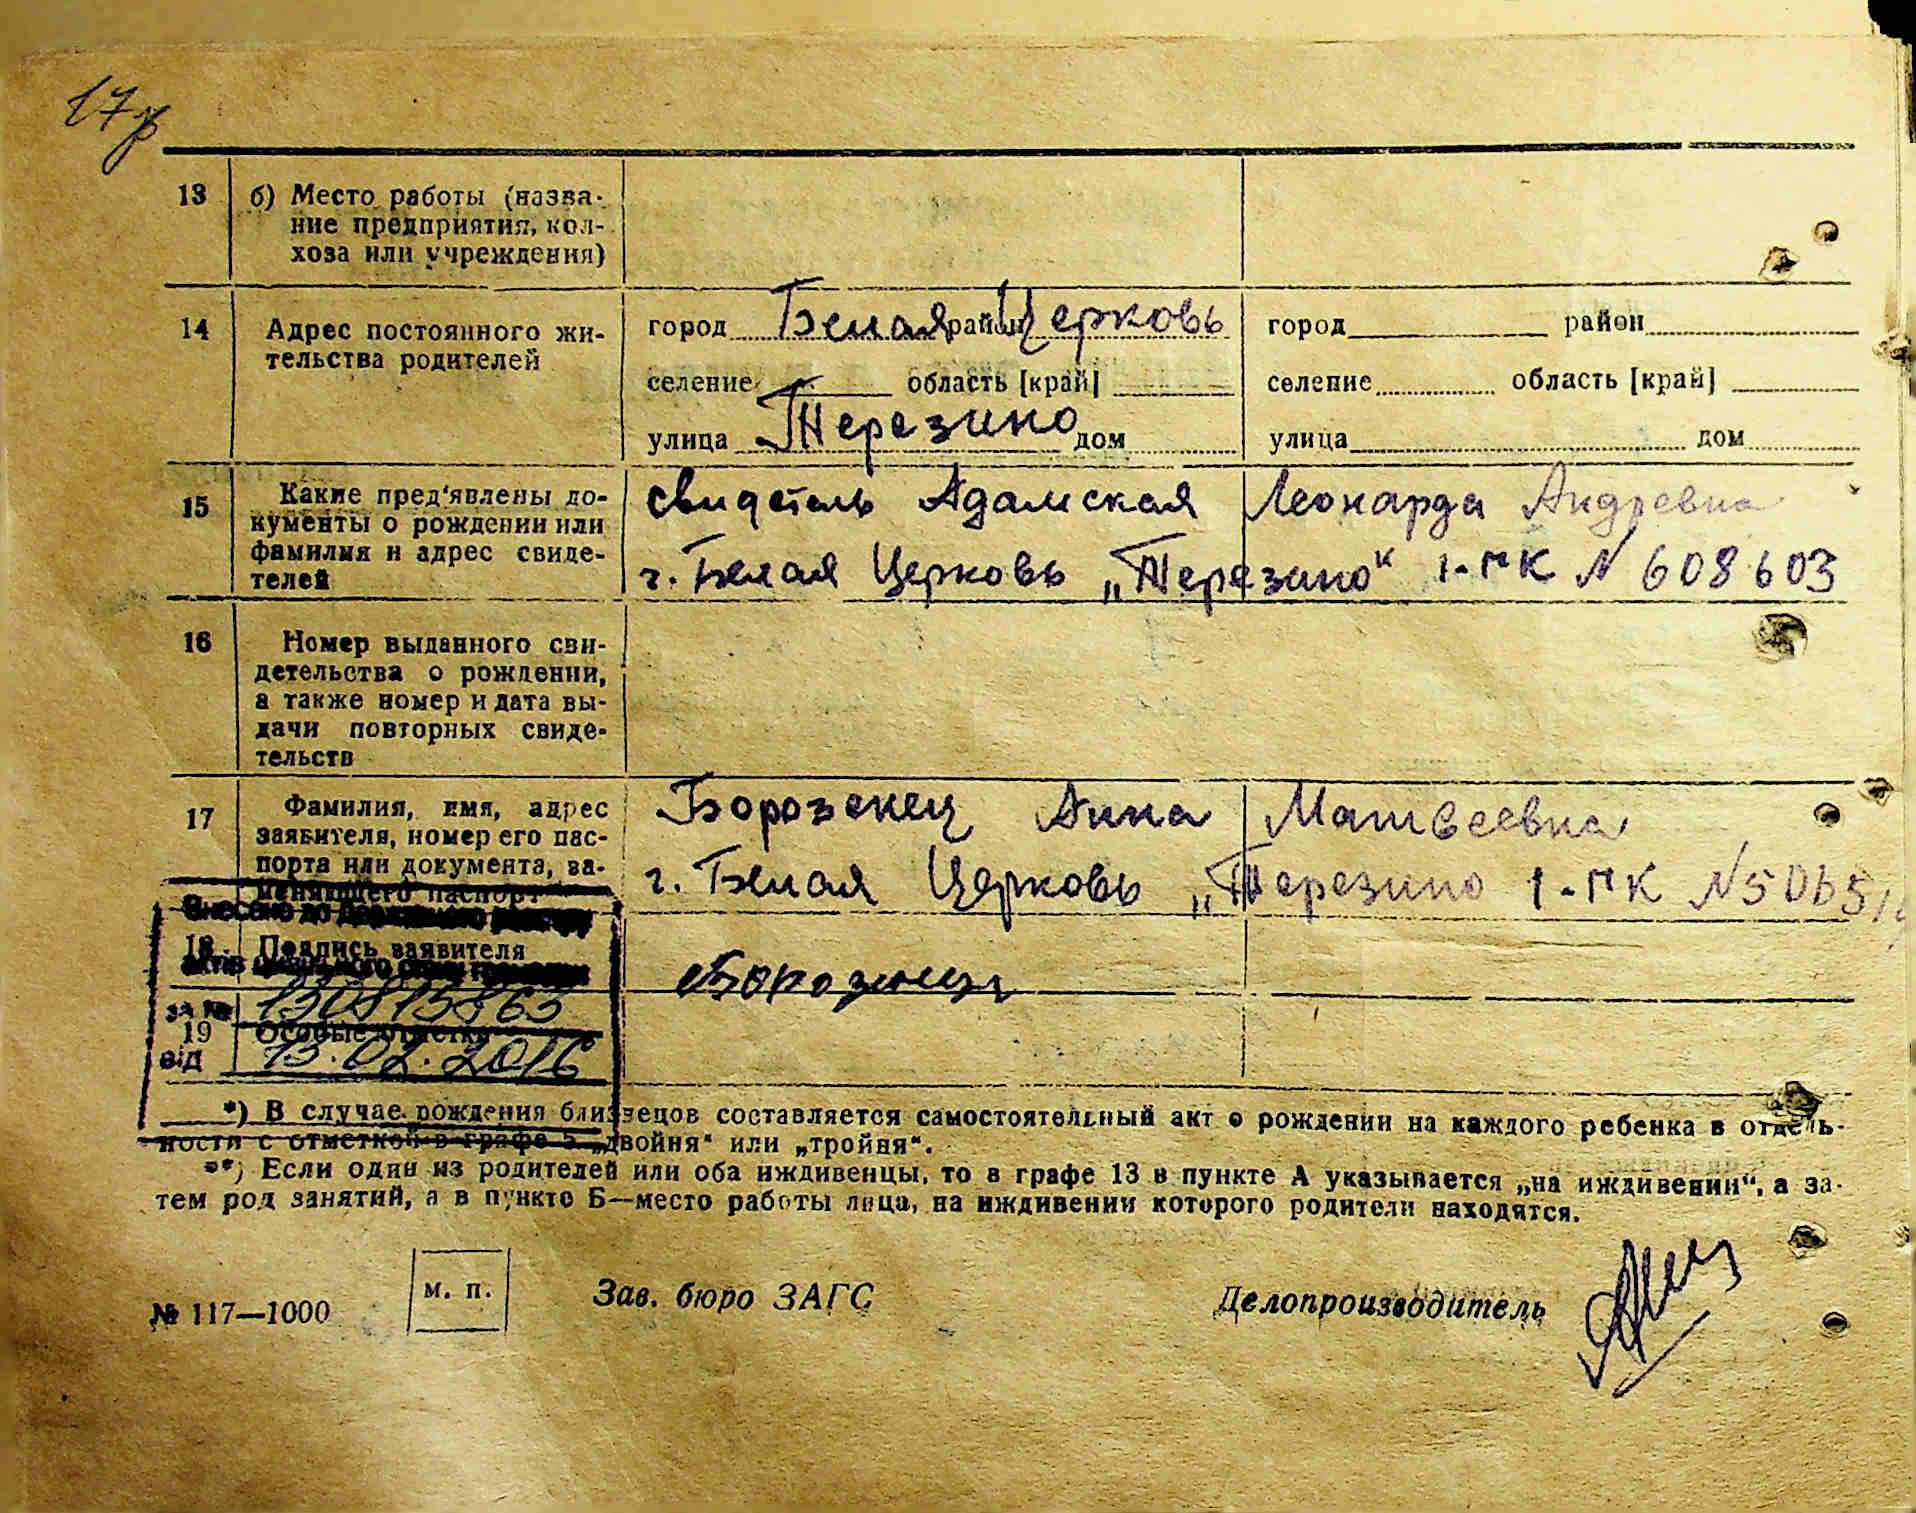 17р
13 б) Место работы (назва-
ние предприятия, кол-
хоза или учреждения)
14 Адрес постоянного жи-
тельства родителей
город Белая Церковь район
селение область [край]
улица Терезино дом
город район
селение область [край]
улица дом
15 Какие пред'явлены до-
кументы о рождении или
фамилия и адрес свиде-
телей
свидетель Адамская Леонарда Андревна
г. Белая Церковь „Терезино" 1-ПК N 608603
16 Номер выданного сви-
детельства о рождении,
а также номер и дата вы-
дачи повторных свиде-
тельств
17 Фамилия, имя, адрес
заявителя, номер его пас-
порта или документа, за-
меняющего паспорт
Борозенец Анна Матвеевна
г. Белая Церковь „Терезино 1-ПК N 5065
Внесено до Державного реєстру
18 Подпись заявителя
Борозенец
актів цивільного стану громадян
за № 130815863
19 Особые отметки
від 13.02.2016
*) В случае рождения близнецов составляется самостоятельный акт о рождении на каждого ребенка в отдель-
ности с отметкой в графе 5 „двойня" или „тройня".
**) Если один из родителей или оба иждивенцы, то в графе 13 в пункте А указывается „на иждивении", а за-
тем род занятий, а в пункте Б—место работы лица, на иждивении которого родители находятся.
№ 117—1000 м. п. Зав. бюро ЗАГС Делопроизводитель